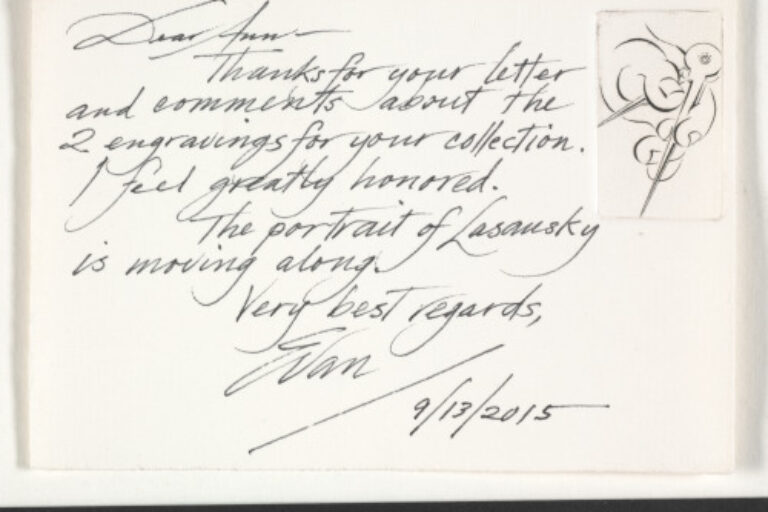 Dear Ann—
Thanks for your letter
and comments about the
2 engravings for your collection.
I feel greatly honored.
The portrait of Lasansky
is moving along.
Very best regards,
Evan
9/13/2015